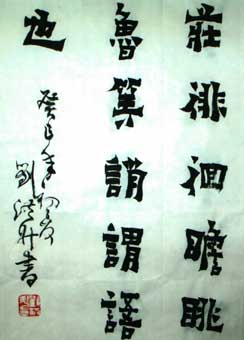 莊徘徊瞻眺
魯等誚謂語
也
癸巳年
劉洪升書